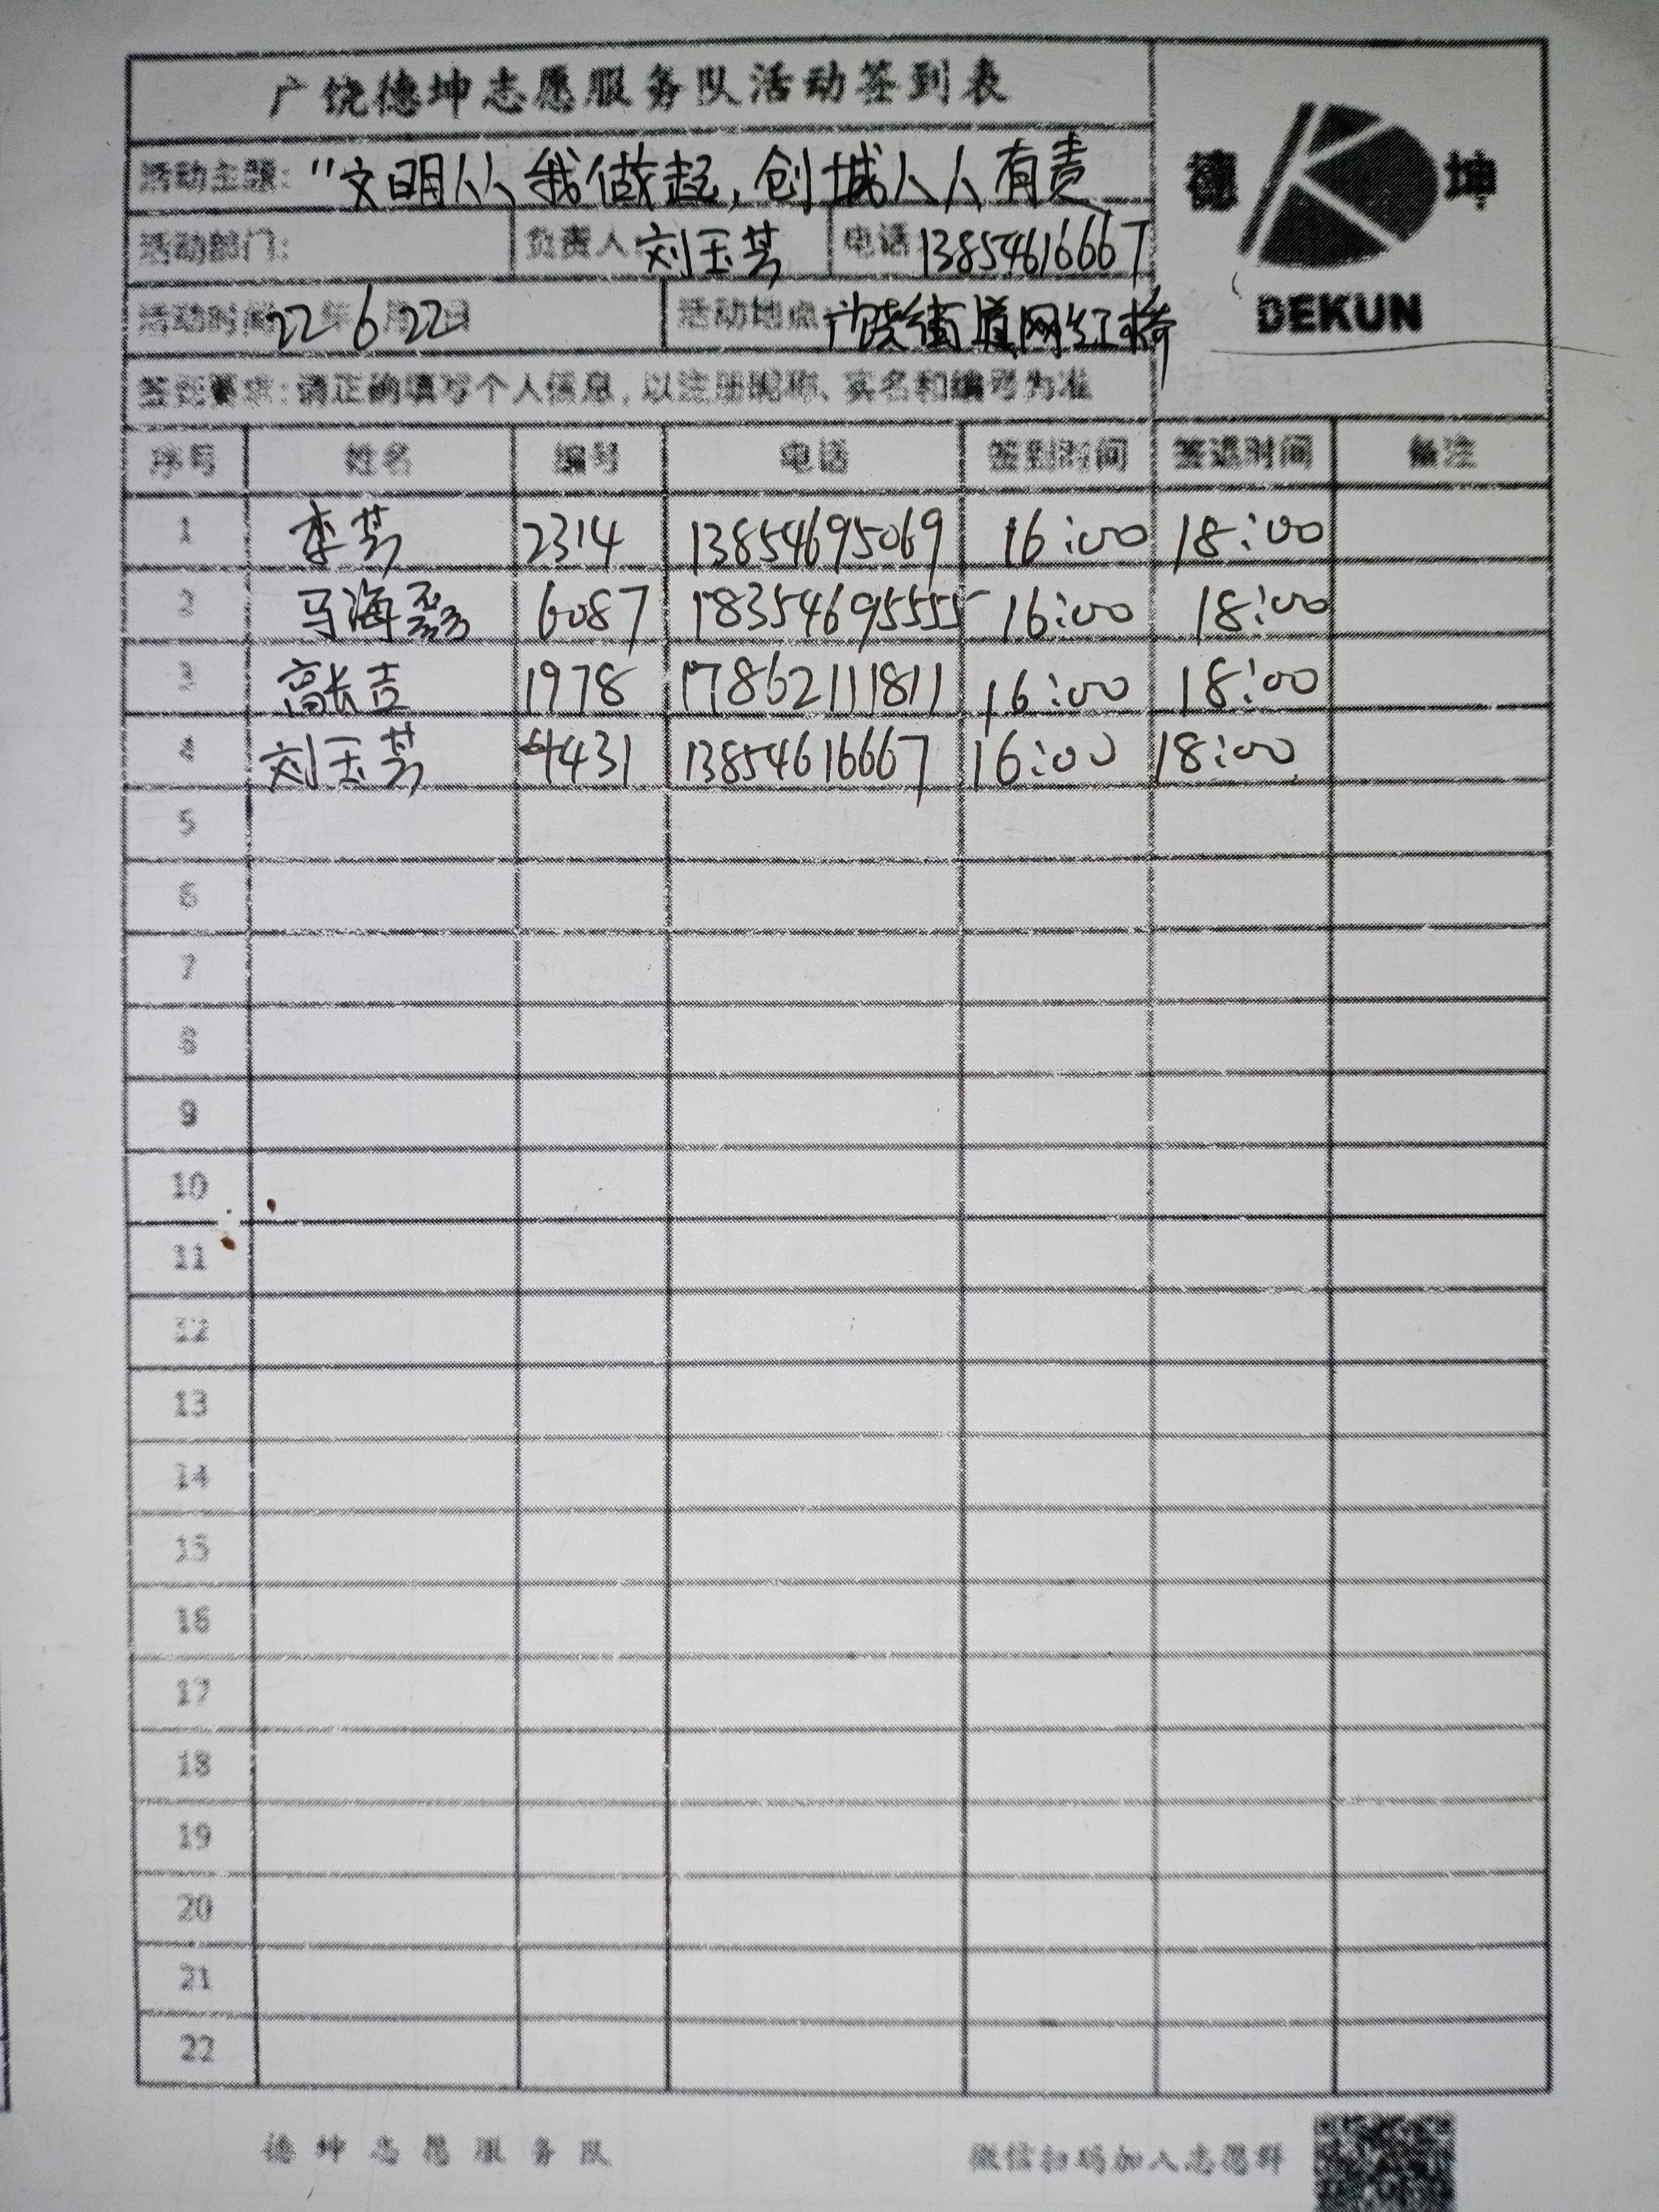 广饶德坤志愿服务队活动签到表
活动主题: "文明从我做起,创城人人有责
德 坤
活动部门: 负责人 刘玉芳 电话 13854616667
活动时间 22年6月22日 活动地点 广饶街道网红桥
DEKUN
签到要求:请正确填写个人信息,以注册昵称、实名和编号为准
序号 姓名 编号 电话 签到时间 签退时间 备注
1 李芳 2314 13854695069 16:00 18:00
2 马海 6087 18354695555 16:00 18:00
3 高长吉 1978 17862111811 16:00 18:00
4 刘玉芳 4431 13854616667 16:00 18:00
5
6
7
8
9
10
11
12
13
14
15
16
17
18
19
20
21
22
德坤志愿服务队 微信扫码加入志愿群